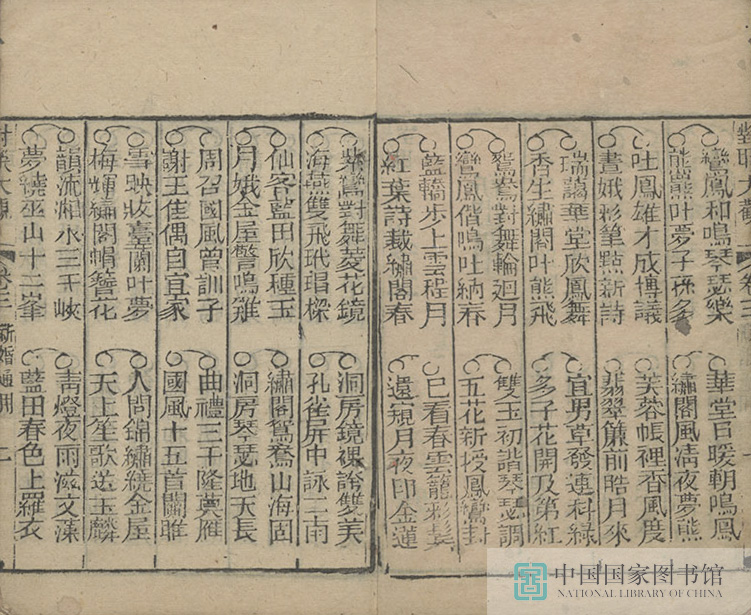 鸞鳳和鳴琴瑟樂
熊羆叶夢子孫多
華堂日暖朝鳴鳳
繡閣風清夜夢熊
吐鳳雄才成博議
畫娥彩筆點新詩
芙蓉帳裡香風度
翡翠簾前皓月來
瑞藹華堂欣鳳舞
香生繡閣叶熊飛
宜男草發連科綠
多子花開及第紅
鴛鴦對舞輪迴月
鸞鳳偕鳴吐納春
雙玉初諧琴瑟調
五花新授鳳鸞封
藍轎步上雲程月
紅葉詩裁繡閣春
已看春雲籠彩髮
還覩月夜印金蓮
紫鸞對舞菱花鏡
海燕雙飛玳瑁樑
洞房鏡裸諭雙美
孔雀屏中詠二南
仙客藍田欣種玉
月娥金屋警鳴雞
繡閣鴛鴦山海固
洞房琴瑟地天長
周召國風曾訓子
謝王佳偶自宜家
曲禮三千隆奠雁
國風十五首關雎
雪映妝臺蘭叶夢
梅輝繡閣帽簪花
人間錦繡纏金屋
天上笙歌送玉麟
韻流湘水三千峽
夢繞巫山十二峯
青燈夜雨滋文藻
藍田春色上羅衣
大觀 卷三 新婚通用
中国国家图书馆
NATIONAL LIBRARY OF CHINA